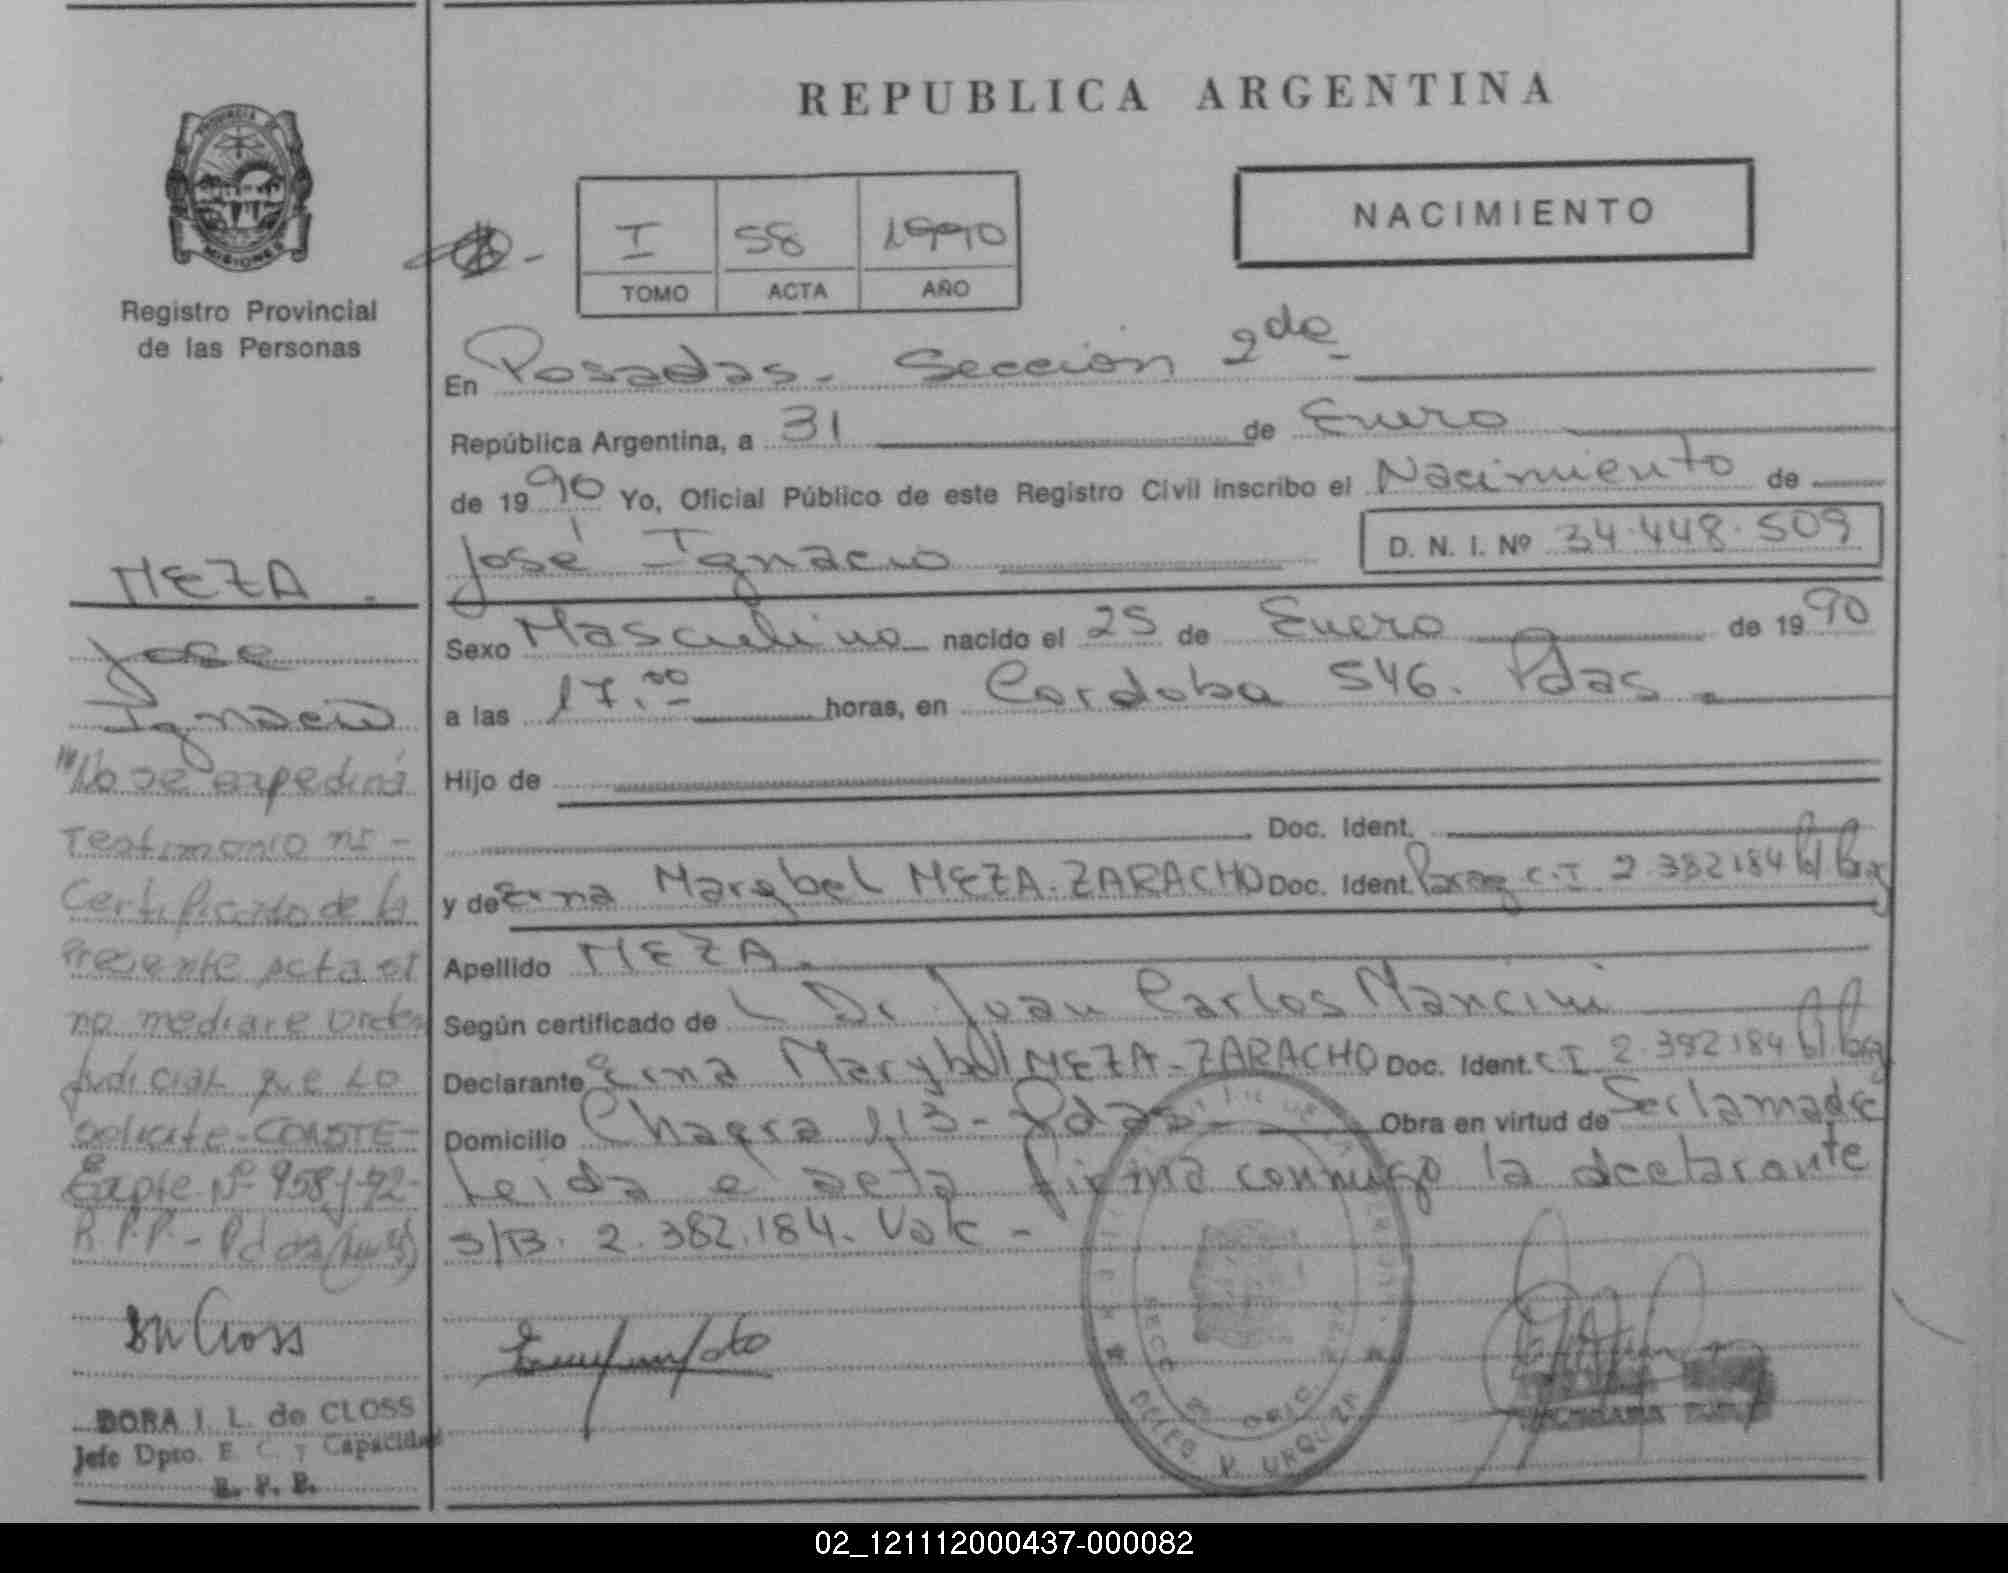 REPUBLICA ARGENTINA
PROVINCIA DE
MISIONES
Registro Provincial
de las Personas
I 58 1990
TOMO ACTA AÑO
NACIMIENTO
En Posadas - Sección 2da
República Argentina, a 31 de Enero
de 1990 Yo, Oficial Público de este Registro Civil inscribo el Nacimiento de
José Ignacio
D. N. I. Nº 34.448.509
Sexo Masculino nacido el 25 de Enero de 1990
a las 17.00 horas, en Cordoba 546. Pdas
Hijo de
Doc. Ident.
y de Erna Marybel MEZA-ZARACHO Doc. Ident. C.I 2.382184
Apellido MEZA.
Según certificado de L Dr Juan Carlos Mancini
Declarante Erna Marybel MEZA-ZARACHO Doc. Ident. C I 2.382.184
Domicilio Chacra 113 - Pdas Obra en virtud de Ser la madre
Leida el acta firma conmigo la declarante
S/B. 2.382.184. Vale -
MEZA.
Jose
Ignacio
"No se expedirá
Testimonio ni -
Certificado de la
Presente acta si
no mediare orden
Judicial que lo
solicite - CONSTE -
Expte Nº 958/92-
R.P.P. - Pdas
DORA I. L. de CLOSS
Jefe Dpto. E. C. y Capacidad
R. P. P.
02_121112000437-000082